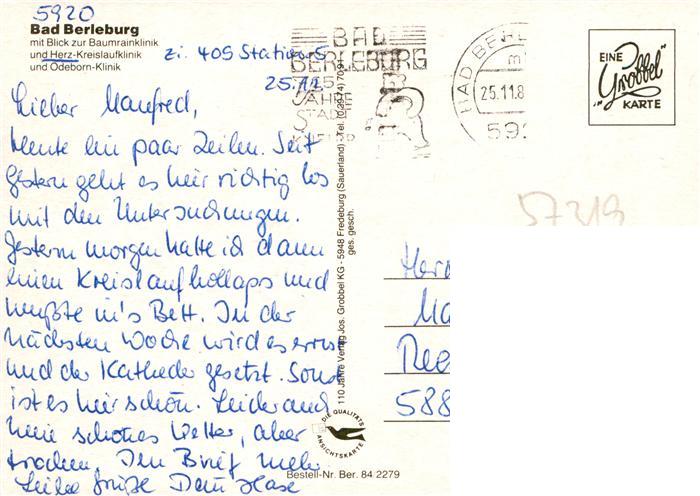 5920
Bad Berleburg
mit Blick zur Baumrainklinik
und Herz-Kreislaufklinik
und Odeborn-Klinik
Zi. 409 Station 5
25.11.
Lieber Manfred,
heute ein paar Zeilen. Seit
gestern geht es hier richtig los
mit den Untersuchungen.
Gestern morgen hatte ich dann
einen Kreislaufkollaps und
mußte in's Bett. In der
nächsten Woche wird es ernst
und der Katheder gesetzt. Sonst
ist es hier schön. Leider auch
kein schönes Wetter, aber
trocken. Im Brief mehr.
Liebe Grüße Dein Hase
BAD
BERLEBURG
JAHRE
STADT
BAD BERLE
25.11.8
592
EINE
"Grobbel"
KARTE
57319
Herr
Ma
Ree
588
110 Jahre Verlag Jos. Grobbel KG - 5948 Fredeburg (Sauerland) - Tel. (02974) 7091
ges. gesch.
DIE QUALITÄTS
ANSICHTSKARTE
Bestell-Nr. Ber. 84/2279